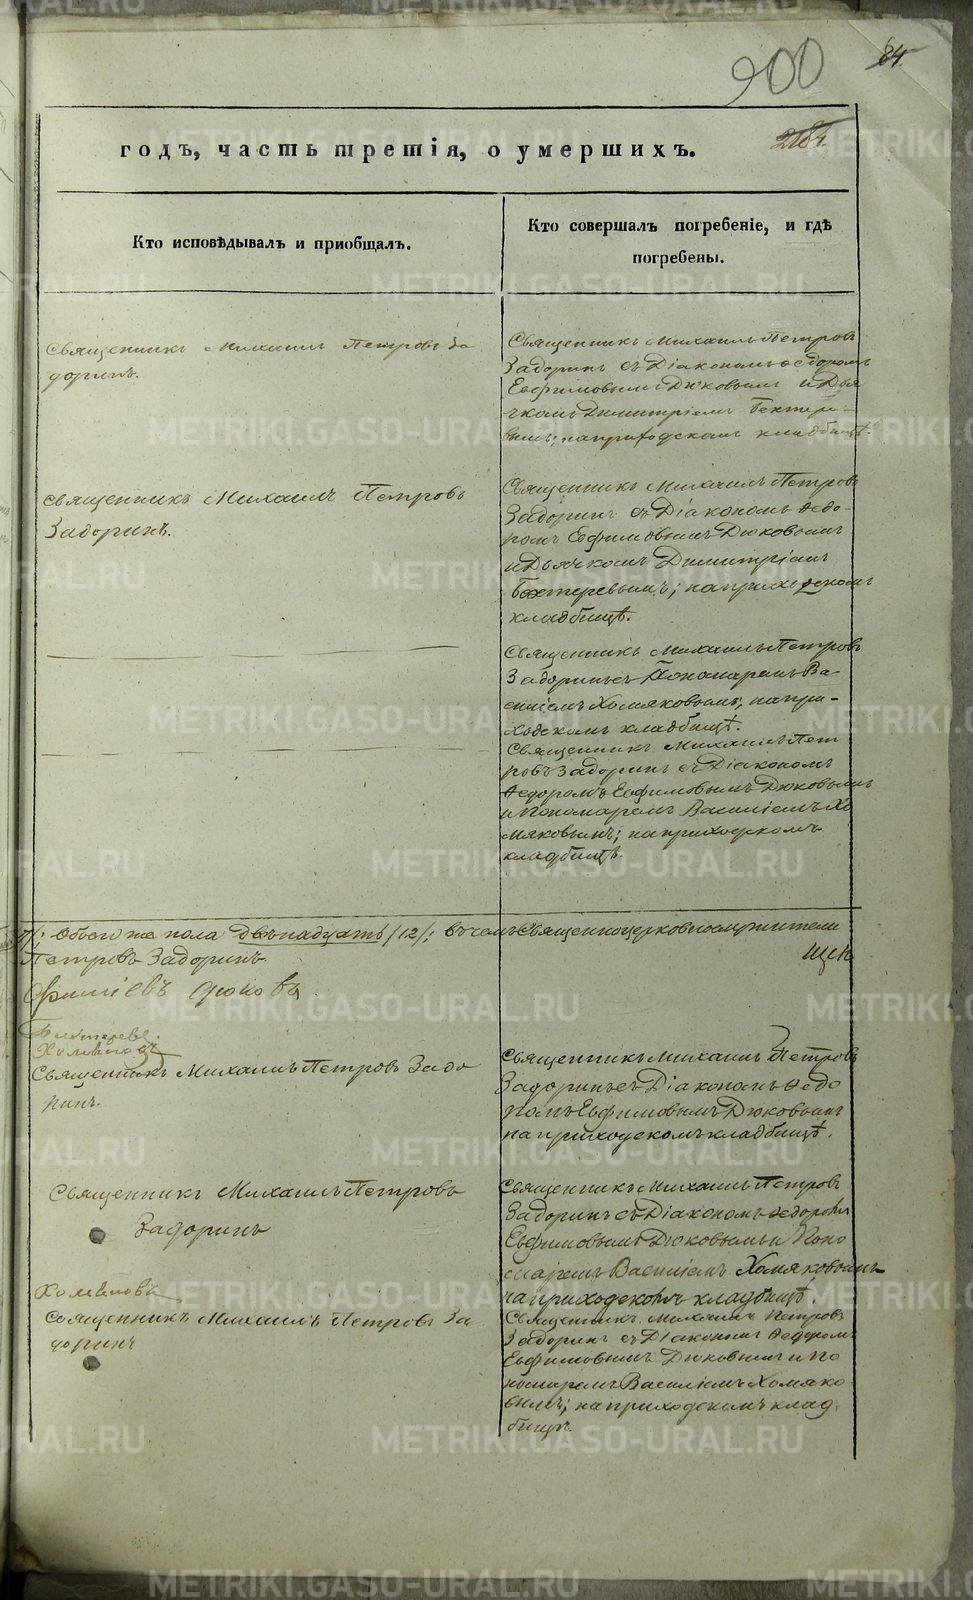 900
84.
годъ, часть третія, о умершихъ.
Кто исповѣдывалъ и приобщалъ.
Кто совершалъ погребеніе, и гдѣ
погребены.
Священникъ Михаилъ Петровъ За
доринъ.
Священникъ Михаилъ Петровъ
Задоринъ съ Діакономъ Ѳедоромъ
Евфимовымъ Дюковымъ и Дья
чкомъ Димитріемъ Бехтере-
вымъ; на приходскомъ кладбищѣ.
Священникъ Михаилъ Петровъ
Задоринъ.
Священникъ Михаилъ Петровъ
Задоринъ съ Діакономъ Ѳедо-
ромъ Евфимовымъ Дюковымъ
и Дьячкомъ Димитріемъ
Бехтеревымъ; на приходскомъ
кладбищѣ.
Священникъ Михаилъ Петровъ
Задоринъ съ Пономаремъ Ва-
силіемъ Хомяковымъ; на при-
ходскомъ кладбищѣ.
Священникъ Михаилъ Пет
ровъ Задоринъ съ Діакономъ
Ѳедоромъ Евфимовымъ Дюковымъ
и Пономаремъ Василіемъ Хо
мяковымъ; на приходскомъ
кладбищѣ.
Обоего же пола двѣнадцать /12/; въ чемъ Священноцерковнослужители
Петровъ Задоринъ
Дюковъ
Священникъ Михаилъ Петровъ Задо
ринъ.
Священникъ Михаилъ Петровъ
Задоринъ съ Діакономъ Ѳедо
ромъ Евфимовымъ Дюковымъ
на приходскомъ кладбищѣ.
Священникъ Михаилъ Петровъ
Задоринъ
Священникъ Михаилъ Петровъ
Задоринъ съ Діакономъ Ѳедоромъ
Евфимовымъ Дюковымъ и Поно
маремъ Василіемъ Хомяковымъ
на приходскомъ кладбищѣ.
Священникъ Михаилъ Петровъ За
доринъ
Священникъ Михаилъ Петровъ
Задоринъ съ Діакономъ Ѳедоромъ
Евфимовымъ Дюковымъ и По
номаремъ Василіемъ Хомяко
вымъ; на приходскомъ клад
бищѣ.
METRIKI.GASO-URAL.RU